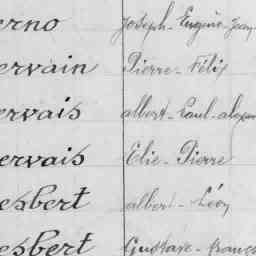 erno Joseph-Eugène-Jean
ervain Pierre-Félix
ervais albert-Paul-alexan
ervais Elie-Pierre
esbert albert-Léon
esbert Gustave-françois